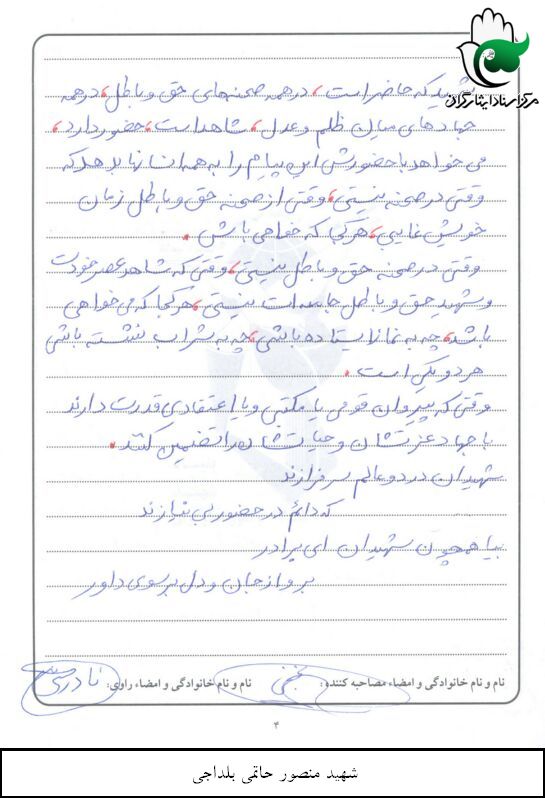 مرکز اسناد ایثارگران
شهید که حاضر است، در همه صحنه‌های حق و باطل، در همه
جهادهای میان ظلم و عدل، شاهد است، حضور دارد،
می خواهد با حضورش این پیام را به همه انسانها بدهد که
وقتی در صحنه نیستی، وقتی از صحنه حق و باطل زمان
خویش غایبی، هر کجا که خواهی باش.
وقتی در صحنه حق و باطل نیستی، وقتی که شاهد عصر خودت
و شهید حق و باطل جامعه ات نیستی، هر کجا که می خواهی
باش، چه به نماز ایستاده باشی، چه به شراب نشسته باشی
هر دو یکی است.
وقتی که پیروان قومی یا مکتبی و یا اعتقادی قدرت دارند
با جهاد عزتشان و حیاتشان را تضمین کنند.
شهیدان در دو عالم سرفرازند
که دائم در حضور بی نیازند
بیا همچون شهیدان ای برادر
بر و از جان و دل بر سوی داور
نام و نام خانوادگی و امضاء مصاحبه کننده: نام و نام خانوادگی و امضاء راوی:
۴
شهید منصور حاتمی بلداجی